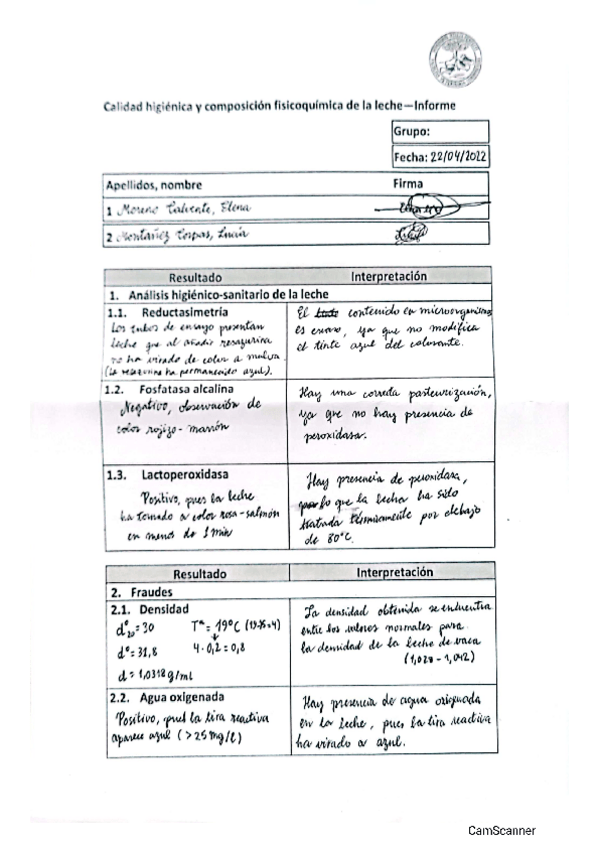 Calidad higiénica y composición fisicoquímica de la leche—Informe
Grupo:
Fecha: 22/04/2022
Apellidos, nombre Firma
1 Moreno Calvente, Elena
2 Montañez Corpas, Lucía
Resultado Interpretación
1. Análisis higiénico-sanitario de la leche
1.1. Reductasimetría
Los tubos de ensayo presentan
leche que al añadir resazurina
no ha virado de color a malva.
(la resazurina ha permanecido azul).
El contenido en microorganismos
es escaso, ya que no modifica
el tinte azul del colorante.
1.2. Fosfatasa alcalina
Negativo, observación de
color rojizo-marrón
Hay una correcta pasteurización,
ya que no hay presencia de
peroxidasa.
1.3. Lactoperoxidasa
Positivo, pues la leche
ha tornado a color rosa-salmón
en menos de 1 min
Hay presencia de peroxidasa,
lo que la leche ha sido
tratada térmicamente por debajo
de 80°C.
Resultado Interpretación
2. Fraudes
2.1. Densidad
d°20 = 30 Tª = 19°C
d° = 31,8 4·0,2 = 0,8
d = 1,0318 g/ml
La densidad obtenida se encuentra
entre los valores normales para
la densidad de la leche de vaca
(1,028 - 1,042)
2.2. Agua oxigenada
Positivo, pues la tira reactiva
aparece azul (>25 mg/l)
Hay presencia de agua oxigenada
en la leche, pues la tira reactiva
ha virado a azul.
CamScanner